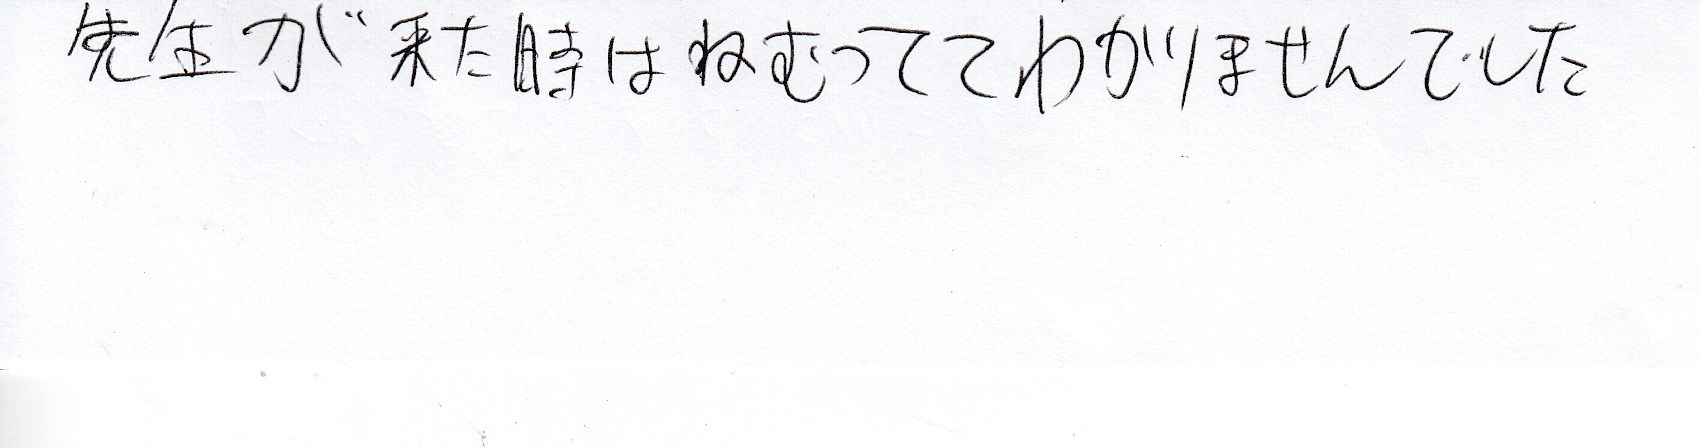 先生が来た時はねむっててわかりませんでした